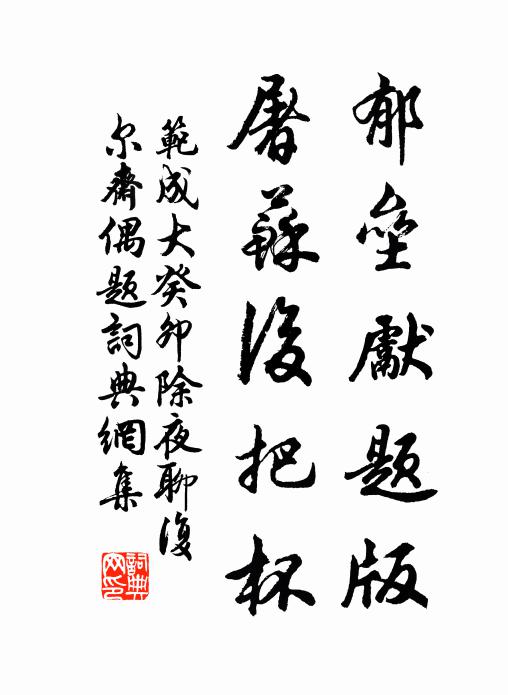 郁壘獻題版
屠蘇後把杯
範成大癸卯除夜聊復
尔齋偶題詞典網集
詞典網印